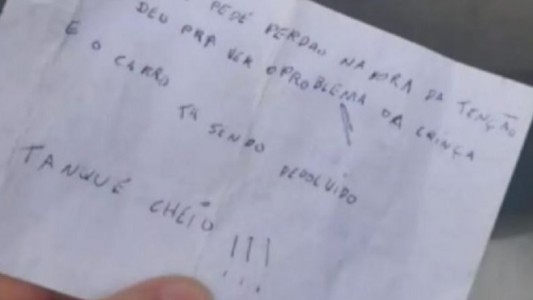 PEDE PERDAO NA HORA DA TENÇÃO
DEU PRA VER O PROBLEMA DA CRINÇA
E O CARRO TA SENDO DEVOLVIDO
TANQUE CHEIO !!!